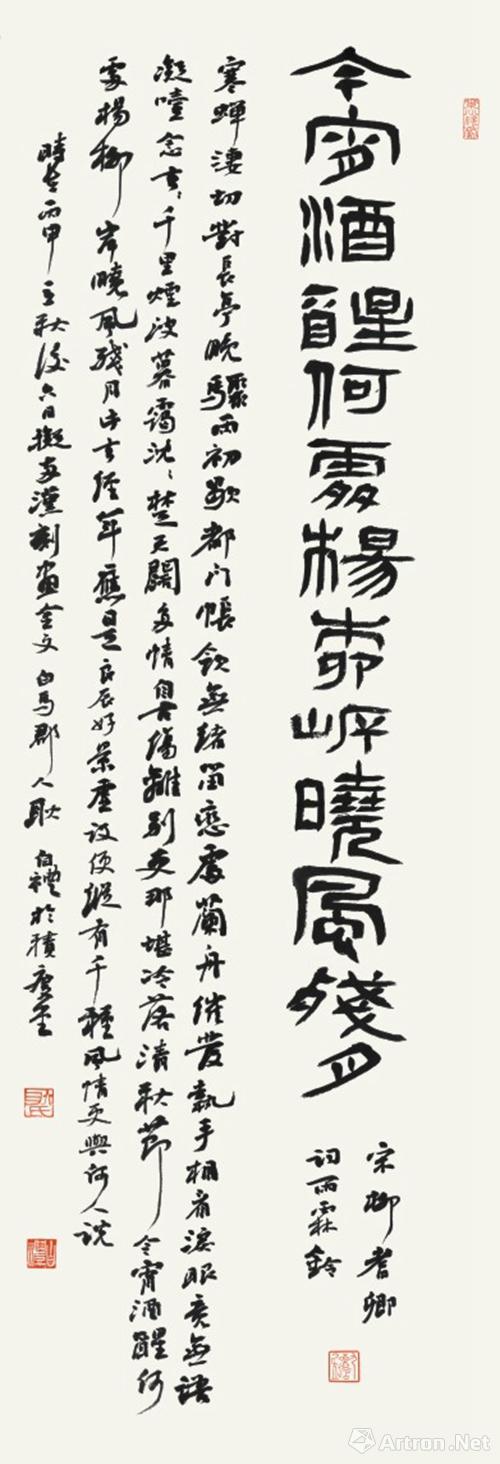 今宵酒醒何處楊柳岸曉風殘月
宋柳耆卿
词雨霖鈴
寒蟬淒切對長亭晚驟雨初歇都门帳飲無緒留戀處蘭舟催發執手相看淚眼竟無語
凝噎念去々千里煙波暮靄沈々楚天闊多情自古傷離別更那堪冷落清秋節今宵酒醒何
處楊柳岸曉風殘月此去經年應是良辰好景虛设便縱有千種風情更與何人说
時在丙申立秋後六日擬東漢刻畫金文白馬郡人耿自禮於積慶堂
Artron.Net